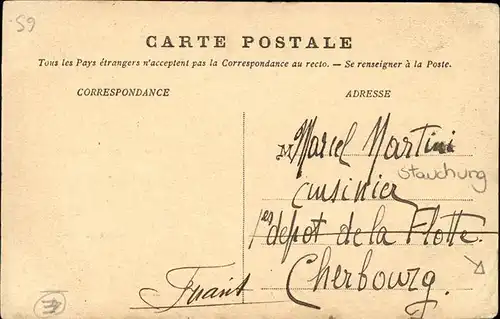 59
CARTE POSTALE
Tous les Pays étrangers n'acceptent pas la Correspondance au recto. — Se renseigner à la Poste.
CORRESPONDANCE
ADRESSE
M Marcel Martini
Stauchung
cuisinier
1er depot de la Flotte.
Cherbourg.